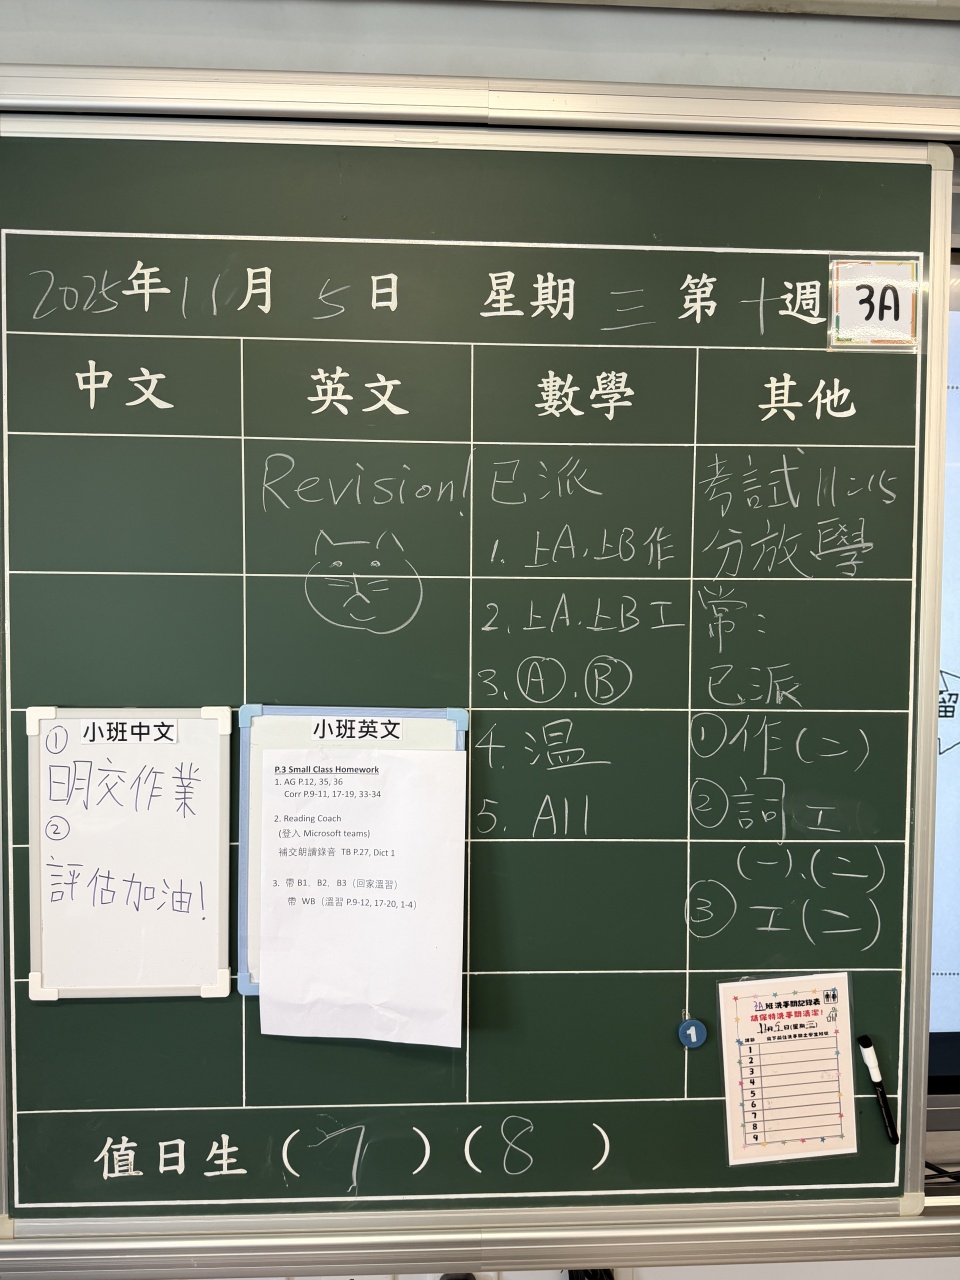 2025年11月5日 星期三 第十週 3A
中文 英文 數學 其他
Revision!
已派
1. 上A.上B作
2. 上A.上B工
3. Ⓐ.Ⓑ
4. 溫
5. All
考試11:15
分放學
常:
已派
①作(二)
②詞工
(一).(二)
③工(二)
小班中文
①
明交作業
②
評估加油!
小班英文
P.3 Small Class Homework
1. AG P.12, 35, 36
Corr P.9-11, 17-19, 33-34
2. Reading Coach
(登入 Microsoft teams)
補交朗讀錄音 TB P.27, Dict 1
3. 帶 B1、B2、B3（回家溫習）
帶 WB（溫習 P.9-12, 17-20, 1-4）
1
3A班洗手間記錄表
請保持洗手間清潔!
11月5日(星期三)
1
2
3
4
5
6
7
8
9
值日生（7）（8）
留